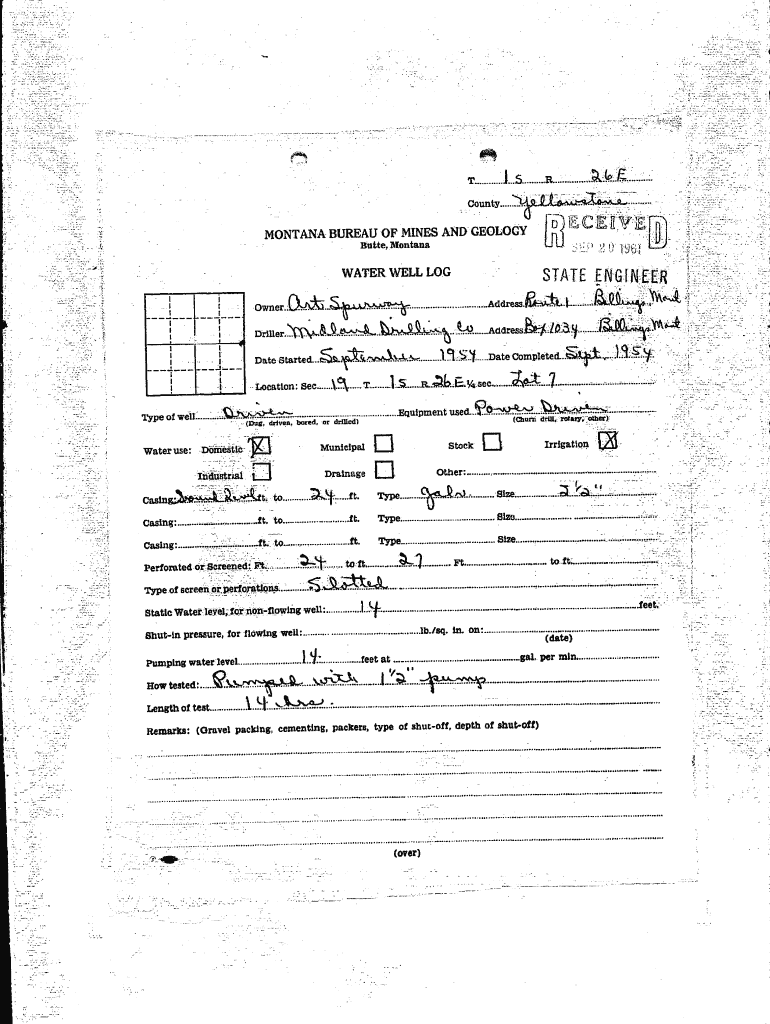 T. 1 S R. 26 E
County Yellowstone
MONTANA BUREAU OF MINES AND GEOLOGY
Butte, Montana
RECEIVED
SEP 20 1961
STATE ENGINEER
WATER WELL LOG
Owner Art Spurway Address Route 1 Billings, Mont
Driller Midland Drilling Co Address Box 1034 Billings Mont
Date Started September 1954 Date Completed Sept. 1954
Location: Sec. 19 T 1 S R 26 E ¼ sec. Lot 7
Type of well Driven Equipment used Power Driven
(Dug, driven, bored, or drilled) (Churn drill, rotary, other)
Water use: Domestic X Municipal Stock Irrigation X
Industrial Drainage Other:
Casing: Ground Level ft. to 24 ft. Type galv Size 2 1/2"
Casing: ft. to ft. Type Size
Casing: ft. to ft. Type Size
Perforated or Screened: Ft. 24 to ft. 27 Ft. to ft.
Type of screen or perforations Slotted
Static Water level, for non-flowing well: 14 feet.
Shut-in pressure, for flowing well: lb./sq. in. on:
(date)
Pumping water level 14 feet at gal. per min.
How tested: Pumped with 1 1/2" pump
Length of test 14 hrs.
Remarks: (Gravel packing, cementing, packers, type of shut-off, depth of shut-off)
(over)